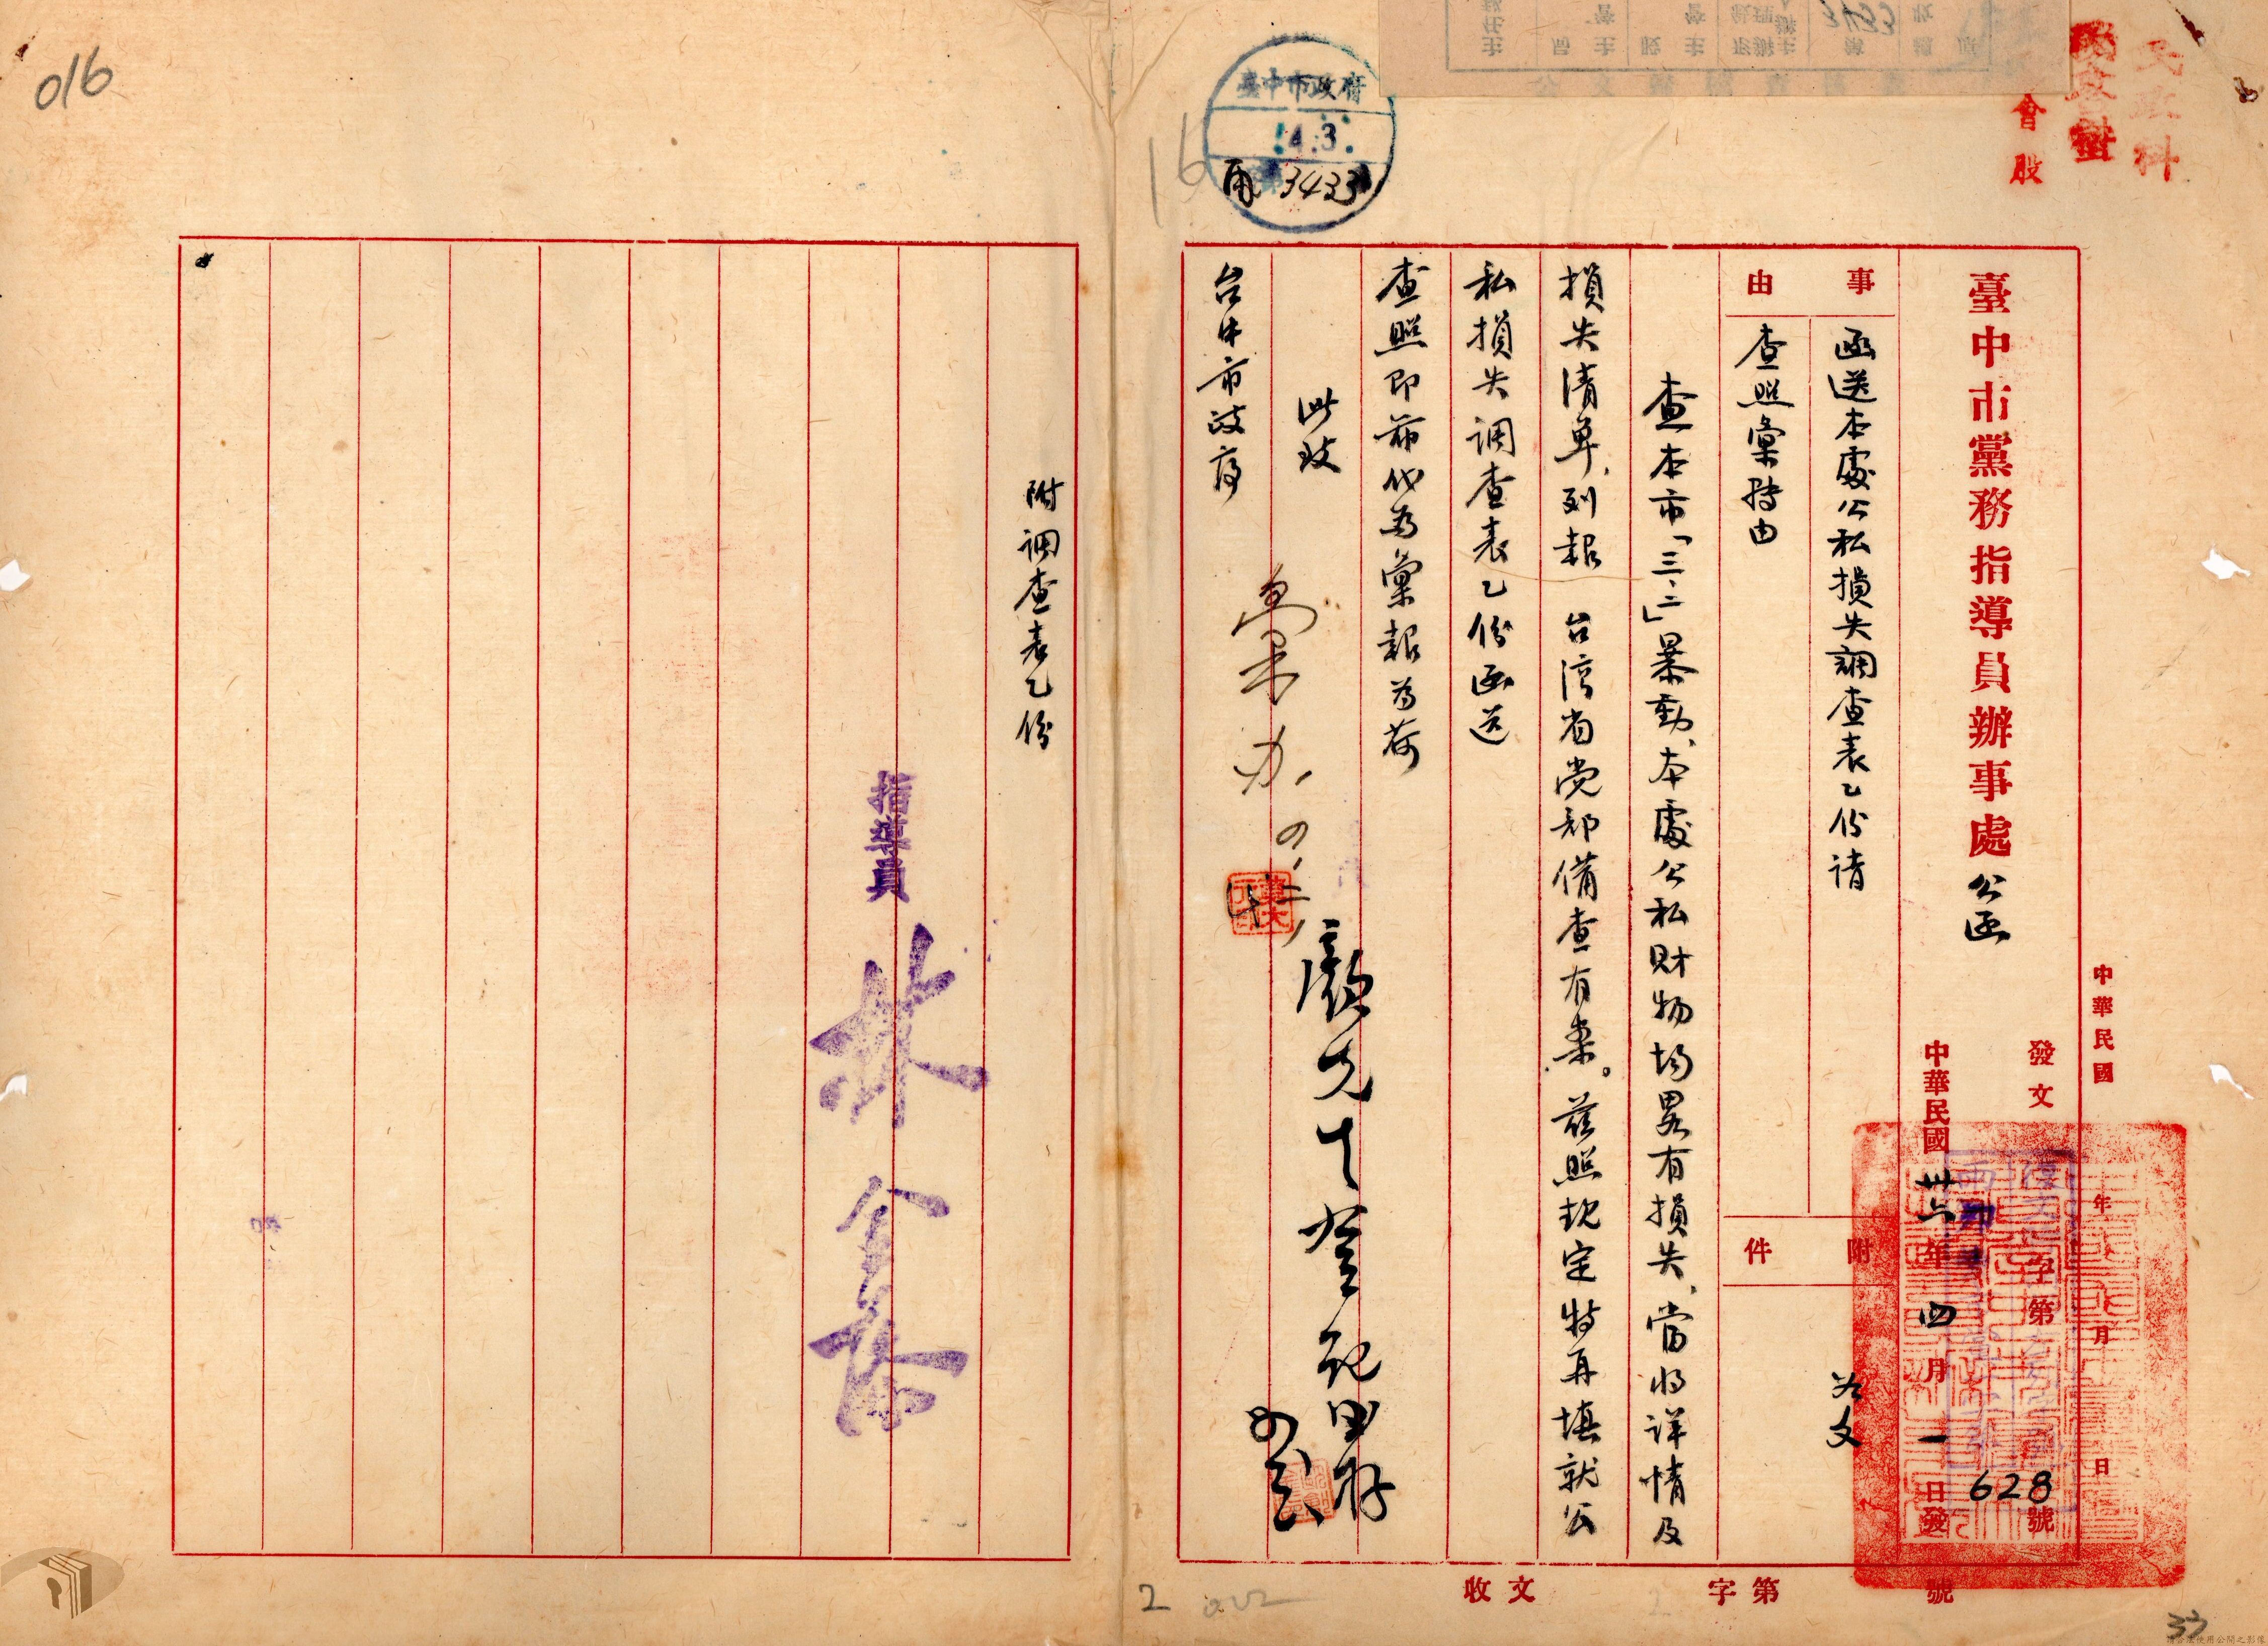 016
16
臺中市政府
4.3.
3433
民政科
會股
臺中市黨務指導員辦事處公函
中華民國 年 月 日
發文 字第628號
中華民國卅六年四月一日發
事由
函送本處公私損失調查表乙份请
查照彙轉由
附件
為文
查本市「三、二」暴動、本處公私財物均畧有損失、當將详情及
損失清单、列報 台湾省党部備查有案。茲照规定特再填就公
私損失调查表乙份函送
查照即希代为彙報为荷
此致
台中市政府
彙办
附调查表乙份
指導員
林金
收文 字第 號
2
33